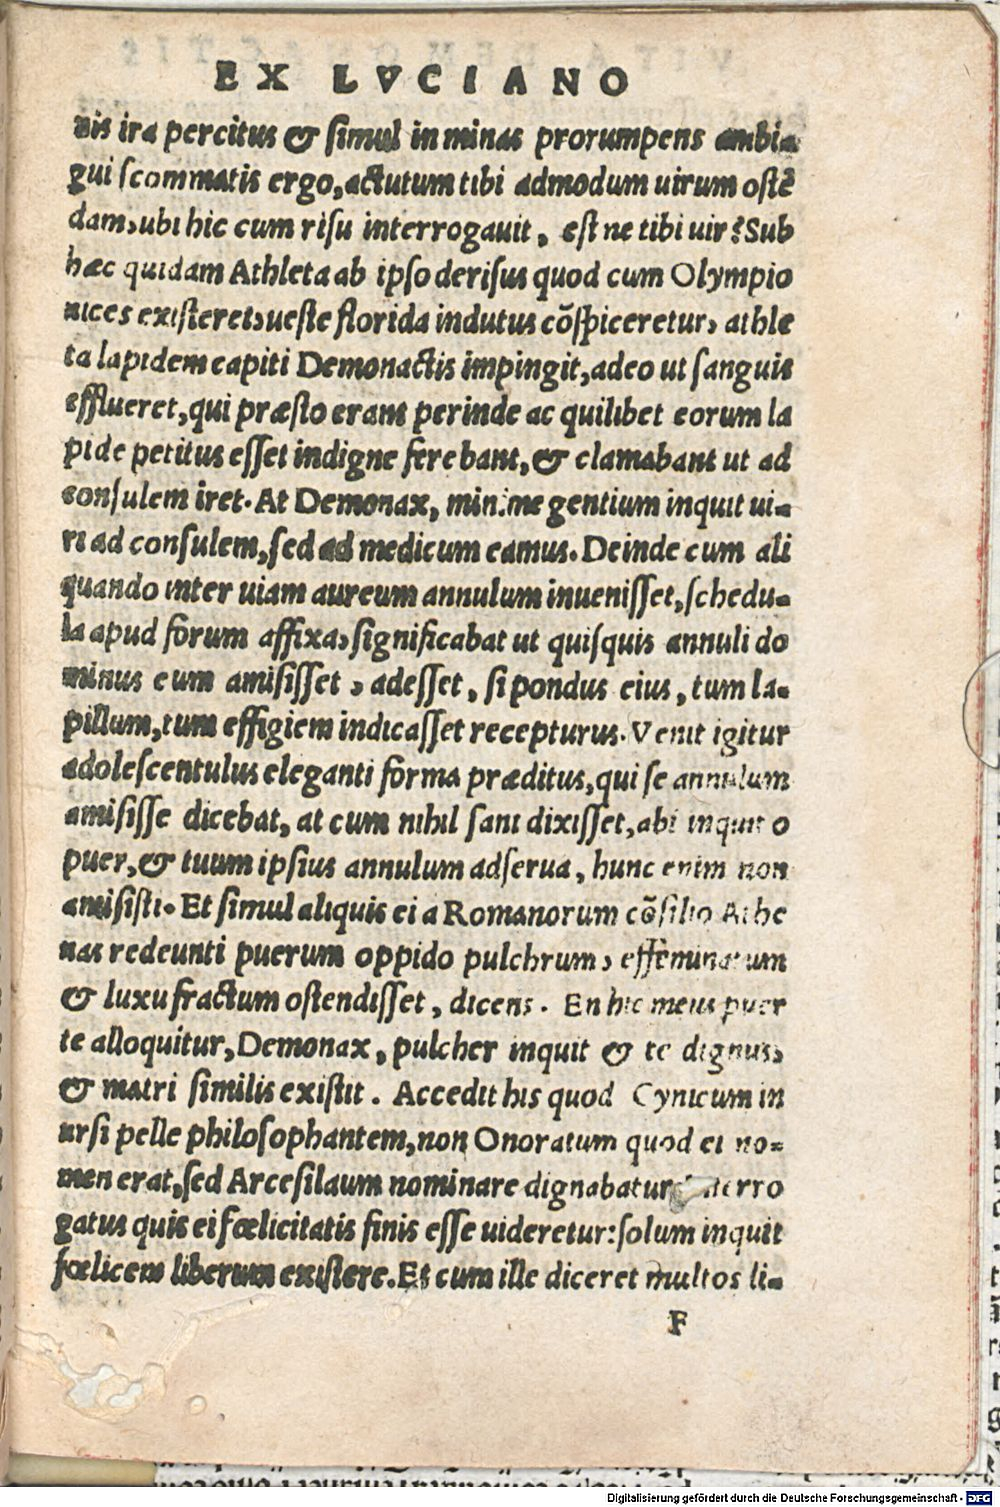 EX LVCIANO
nis ira percitus & simul in minas prorumpens ambi-
gui scommatis ergo, actutum tibi admodum uirum ostẽ
dam, ubi hic cum risu interrogauit, est ne tibi uir? Sub
hæc quidam Athleta ab ipso derisus quod cum Olympio
nices existeret, ueste florida indutus cõspiceretur, athle
ta lapidem capiti Demonactis impingit, adeo ut sanguis
efflueret, qui præsto erant perinde ac quilibet eorum la
pide petitus esset indigne ferebant, & clamabant ut ad
consulem iret. At Demonax, minime gentium inquit ui-
ri ad consulem, sed ad medicum eamus. Deinde cum ali
quando inter uiam aureum annulum inuenisset, schedu-
la apud forum affixa, significabat ut quisquis annuli do
minus eum amisisset, adesset, si pondus eius, tum la-
pillum, tum effigiem indicasset recepturus. Venit igitur
adolescentulus eleganti forma præditus, qui se annulum
amisisse dicebat, at cum nihil sani dixisset, abi inquit o
puer, & tuum ipsius annulum adserua, hunc enim non
amisisti. Et simul aliquis ei a Romanorum cõsilio Athe
nas redeunti puerum oppido pulchrum, effeminatum
& luxu fractum ostendisset, dicens. En hic meus puer
te alloquitur, Demonax, pulcher inquit & te dignus,
& matri similis existit. Accedit his quod Cynicum in
ursi pelle philosophantem, non Onoratum quod ei no-
men erat, sed Arcesilaum nominare dignabatur. Interro
gatus quis ei fœlicitatis finis esse uideretur: solum inquit
fœlicem liberum existere. Et cum ille diceret multos li-
F
Digitalisierung gefördert durch die Deutsche Forschungsgemeinschaft - DFG